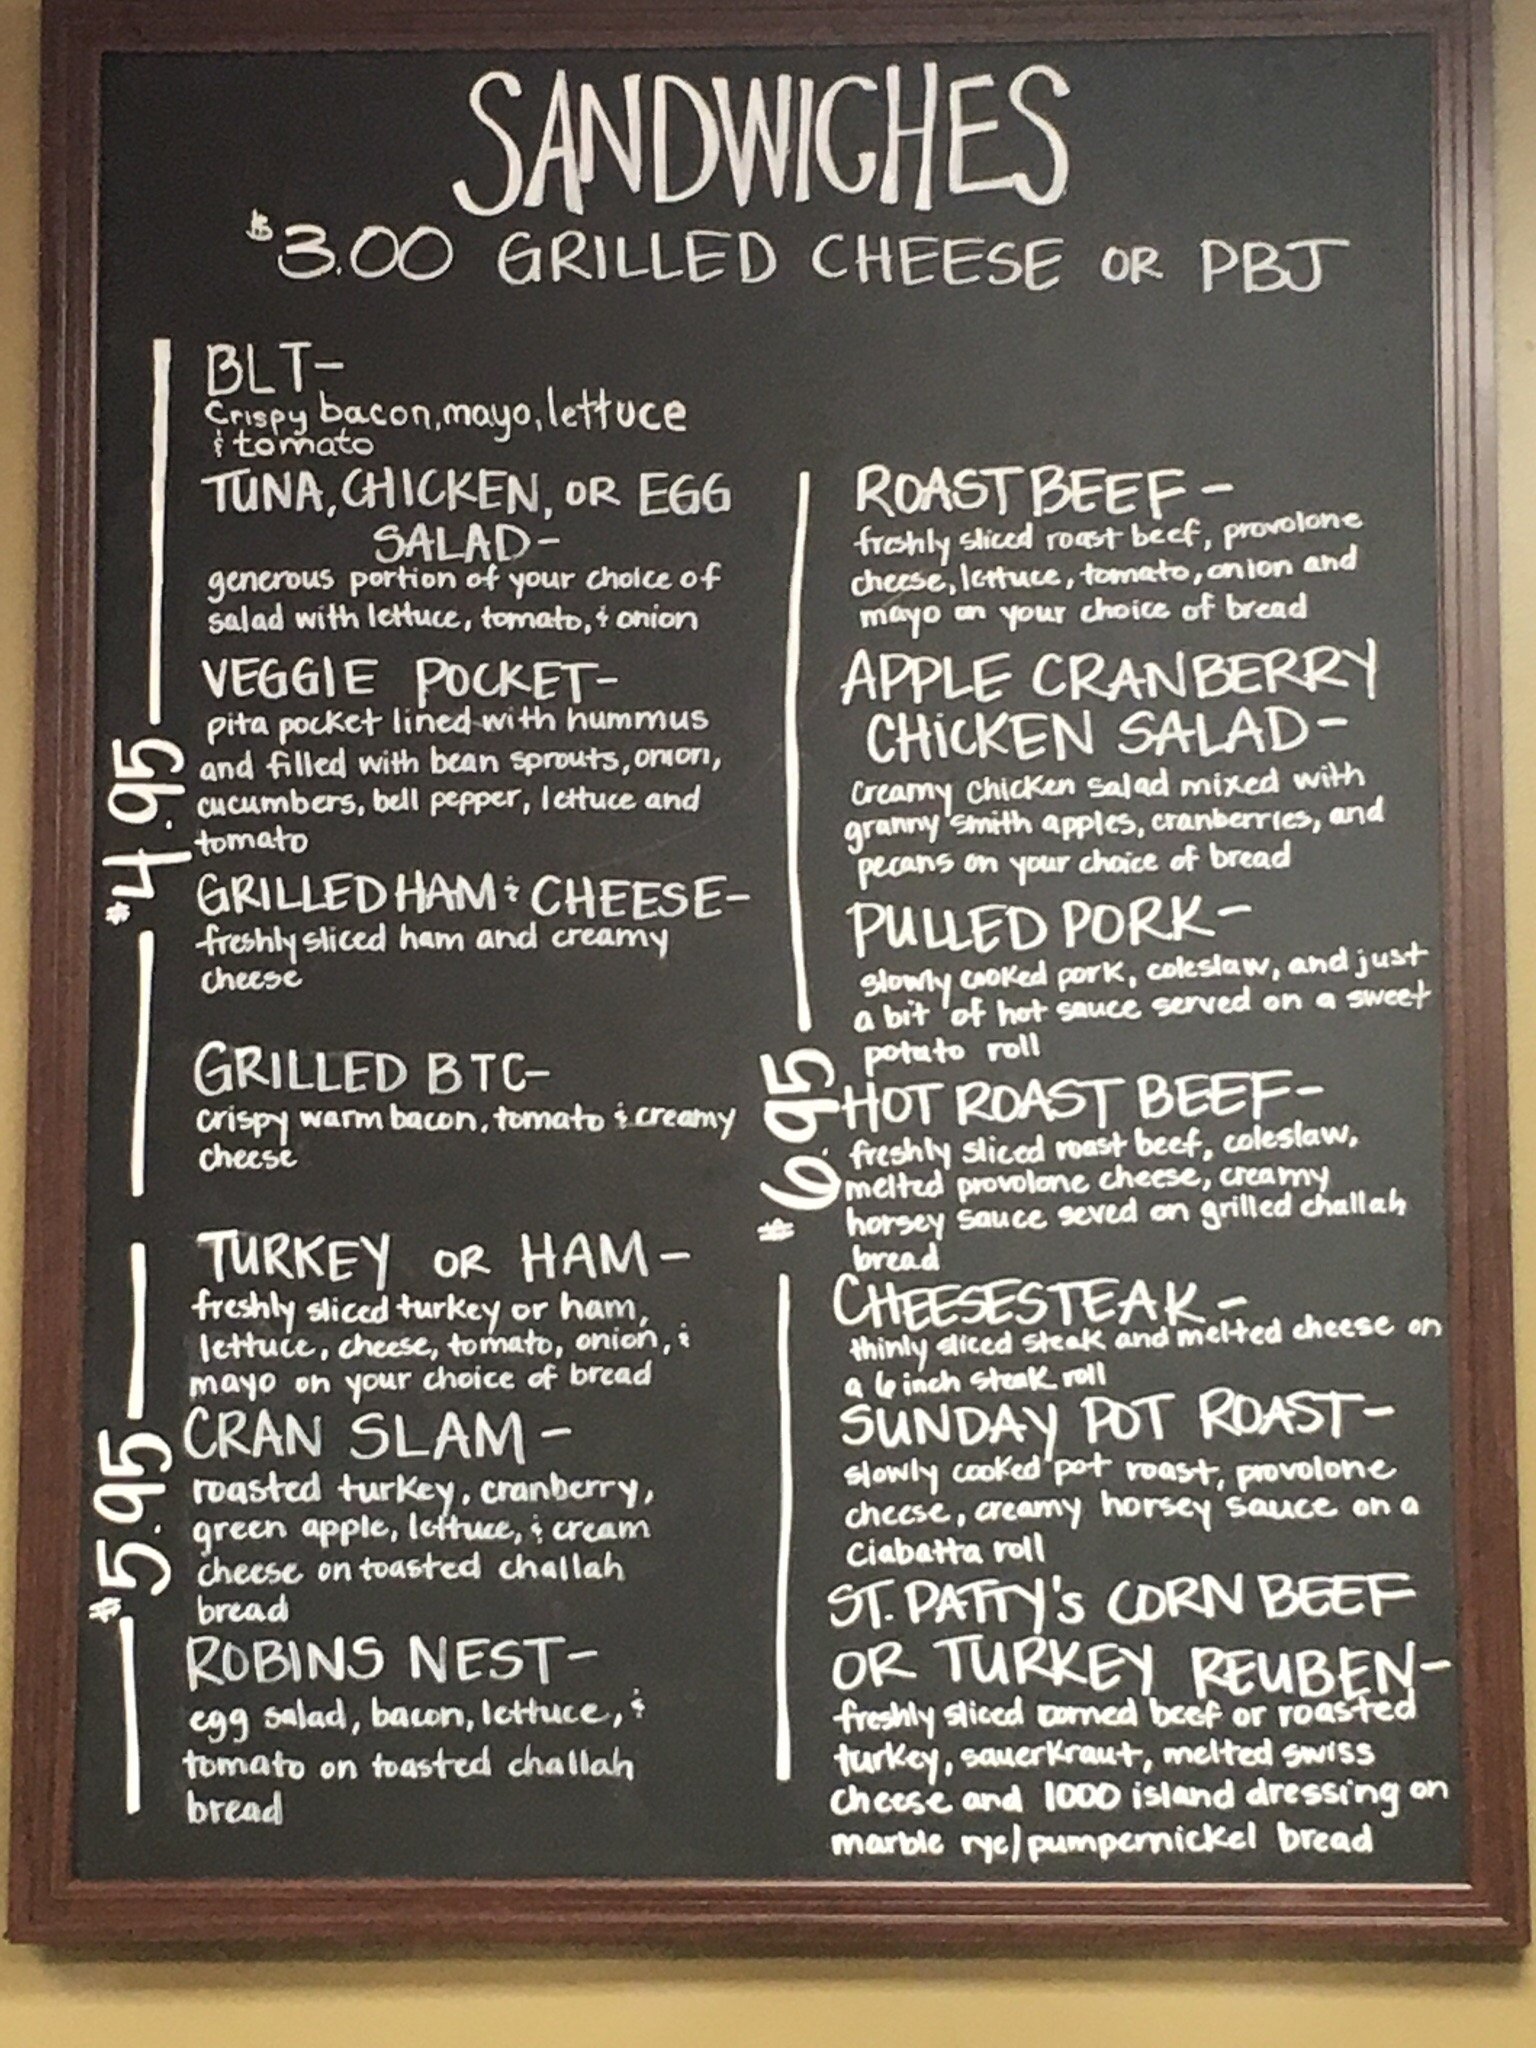 SANDWICHES
$3.00 GRILLED CHEESE OR PBJ
$4.95
BLT-
Crispy bacon, mayo, lettuce
& tomato
TUNA, CHICKEN, OR EGG
SALAD-
generous portion of your choice of
salad with lettuce, tomato, & onion
VEGGIE POCKET-
pita pocket lined with hummus
and filled with bean sprouts, onion,
cucumbers, bell pepper, lettuce and
tomato
GRILLED HAM & CHEESE-
freshly sliced ham and creamy
cheese
GRILLED BTC-
crispy warm bacon, tomato & creamy
cheese
$5.95
TURKEY OR HAM-
freshly sliced turkey or ham,
lettuce, cheese, tomato, onion, &
mayo on your choice of bread
CRAN SLAM-
roasted turkey, cranberry,
green apple, lettuce, & cream
cheese on toasted challah
bread
ROBINS NEST-
egg salad, bacon, lettuce, &
tomato on toasted challah
bread
$6.95
ROAST BEEF-
freshly sliced roast beef, provolone
cheese, lettuce, tomato, onion and
mayo on your choice of bread
APPLE CRANBERRY
CHICKEN SALAD-
creamy chicken salad mixed with
granny smith apples, cranberries, and
pecans on your choice of bread
PULLED PORK-
slowly cooked pork, coleslaw, and just
a bit of hot sauce served on a sweet
potato roll
HOT ROAST BEEF-
freshly sliced roast beef, coleslaw,
melted provolone cheese, creamy
horsey sauce seved on grilled challah
bread
CHEESESTEAK-
thinly sliced steak and melted cheese on
a 6 inch steak roll
SUNDAY POT ROAST-
slowly cooked pot roast, provolone
cheese, creamy horsey sauce on a
Ciabatta roll
ST. PATTY's CORN BEEF
OR TURKEY REUBEN-
freshly sliced corned beef or roasted
turkey, sauerkraut, melted swiss
cheese and 1000 island dressing on
marble rye/pumpernickel bread